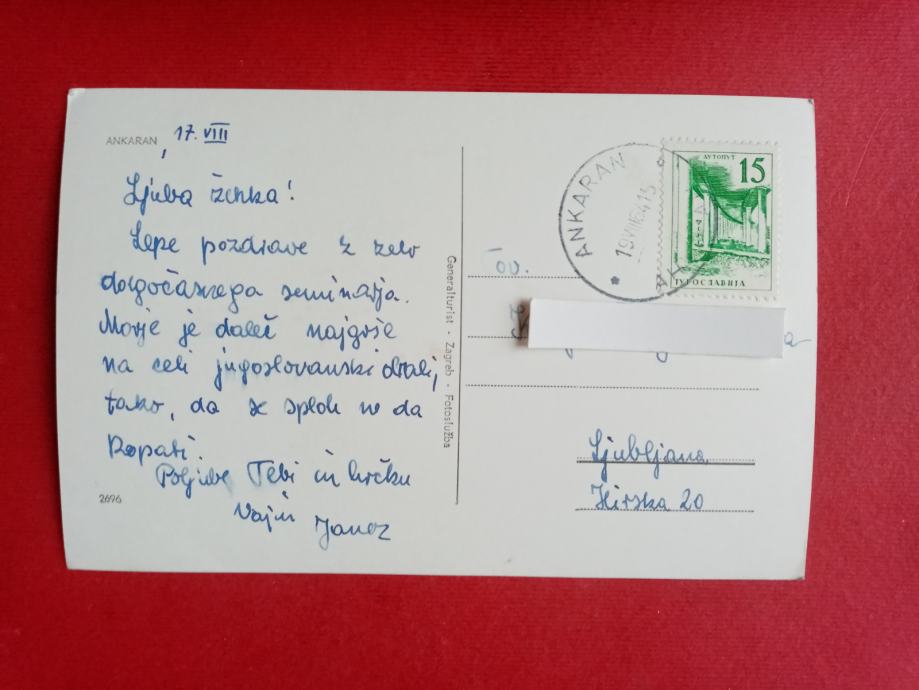 ANKARAN, 17. VIII
Ljuba ženka!
Lepe pozdrave z zelo
dolgočasnega seminarja.
Morje je daleč najgrše
na celi jugoslovanski obali,
tako, da se sploh ne da
kopati.
Poljube Tebi in hrčku
Vajin Janez
2696
Generalturist - Zagreb - Fotoslužba
ANKARAN
19.VIII64 13
АУТОПУТ
15
ЈУГОСЛАВИЈА
Tov.
Ljubljana
Ilirska 20